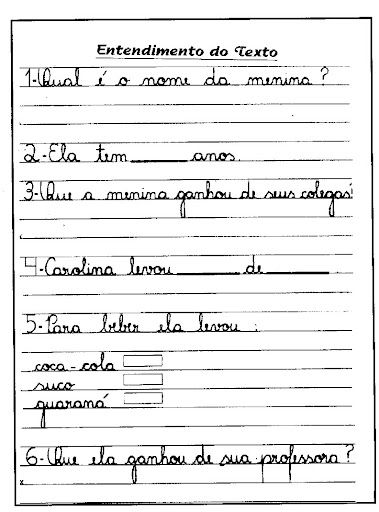 Entendimento do Texto
1-Qual é o nome da menina?
2-Ela tem______anos.
3-Que a menina ganhou de seus colegas?
4-Carolina levou ________ de ________
5-Para beber ela levou :
coca-cola
suco
guaraná
6-Que ela ganhou de sua professora?